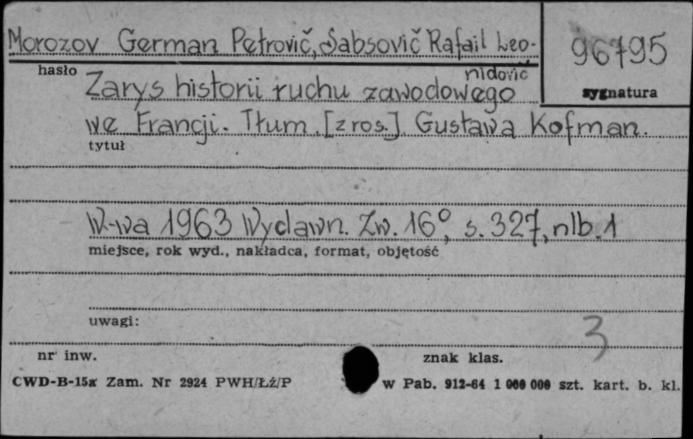 Morozov German Petrovič, Sabsovič Rafail Leo-
nidovič
96795
hasło
sygnatura
Zarys historii ruchu zawodowego
we Francji. Tłum. [z ros.] Gustawa Kofman.
tytuł
W-wa 1963 Wydawn. Zw. 16°, s. 327, nlb. 1
miejsce, rok wyd., nakładca, format, objętość
uwagi:
3
nr inw.
znak klas.
CWD-B-15x Zam. Nr 2924 PWH/Łź/P
w Pab. 912-64 1 000 000 szt. kart. b. kl.